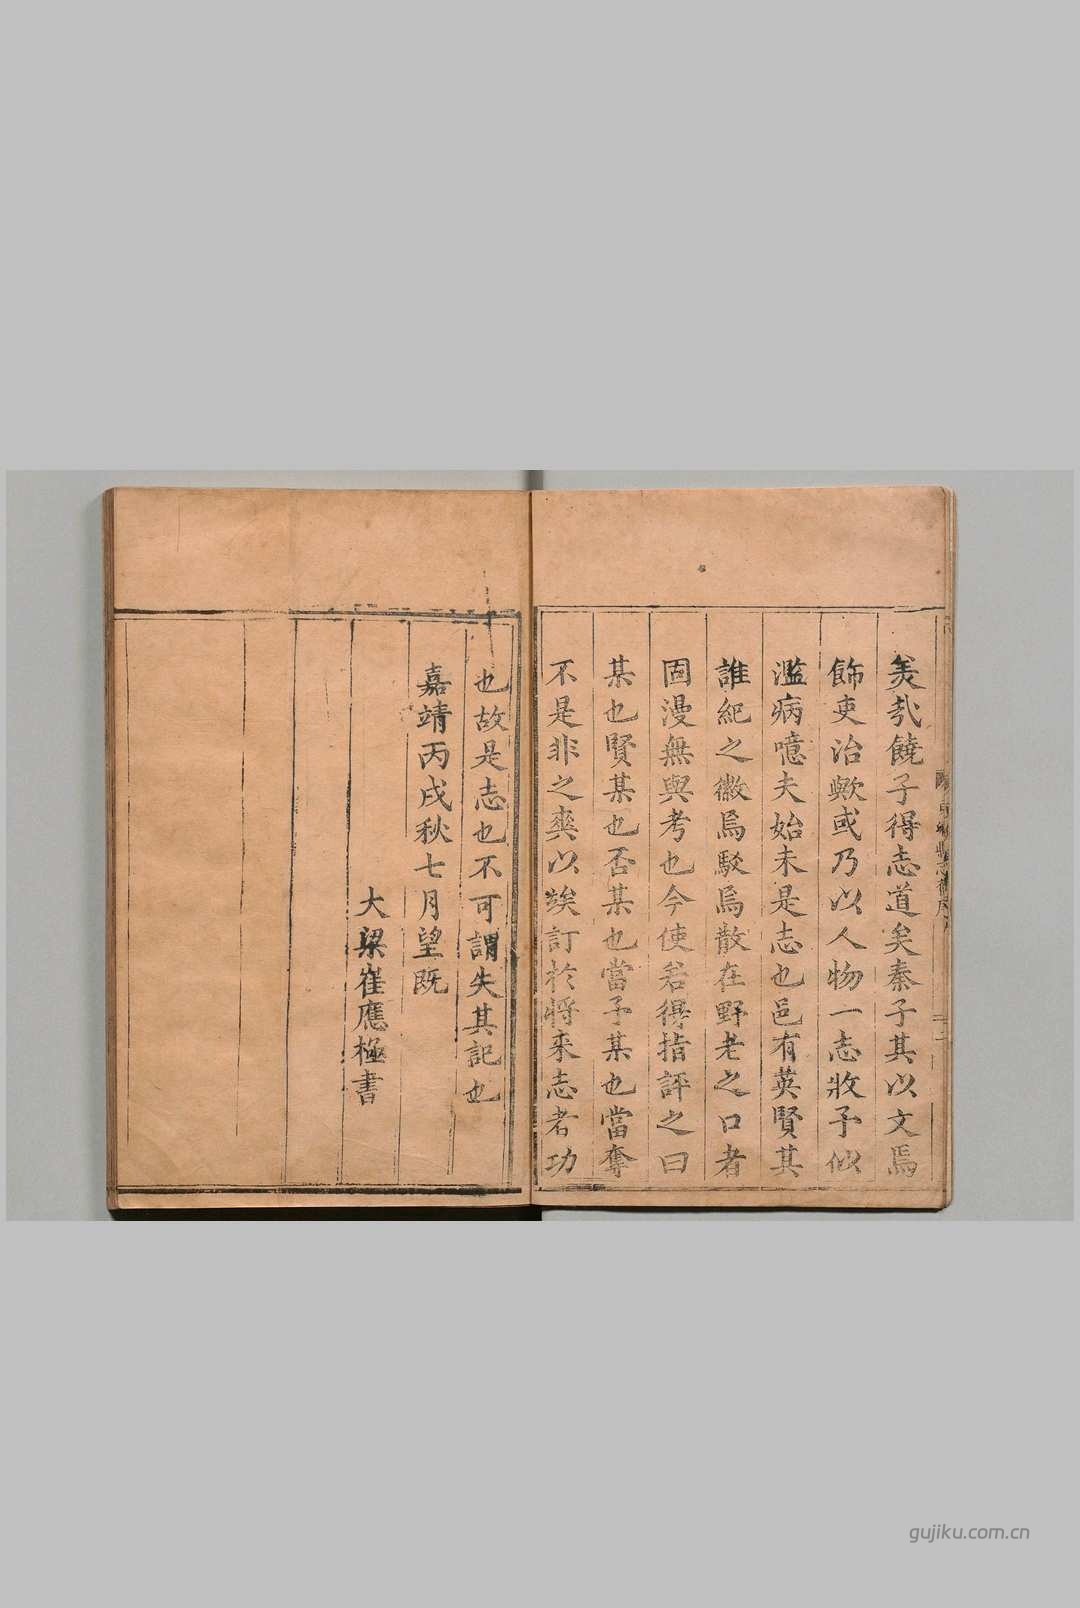 美哉饒子得志道矣秦子其以文焉
飾吏治歟或乃以人物一志收予似
濫病噫夫始未是志也邑有英賢其
誰紀之徽焉駁焉散在野老之口者
固漫無與考也今使若得指評之曰
某也賢某也否某也當予某也當奪
不是非之爽以竢訂於將來志者功
也故是志也不可謂失其記也
嘉靖丙戌秋七月望既
大梁崔應極書
gujiku.com.cn